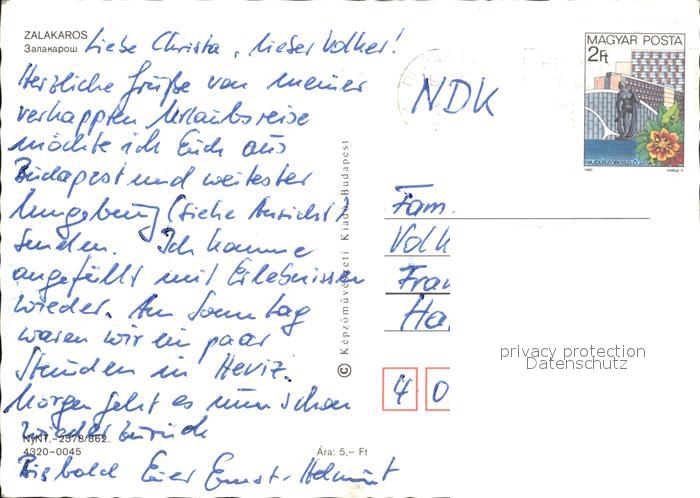 ZALAKAROS
Залакарош
Liebe Christa, lieber Volker!
Herzliche Grüße von meiner
verkappten Urlaubsreise
möchte ich Euch aus
Budapest und weitester
Umgebung (siehe Ansicht)
senden. Ich komme
angefüllt mit Erlebnissen
wieder. Am Sonntag
waren wir ein paar
Stunden in Heviz.
Morgen geht es nun schon
wieder zurück
NyNT.-2378/862.
4320-0045
Ára: 5,– Ft
Bis bald Euer Ernst-Helmut
© Képzőművészeti Kiadó Budapest
MAGYAR POSTA
2Ft
HAJDÚSZOBOSZLÓ
1983
VARGA P.
NDK
Fam.
Volk
Fran
Ha
4 0
privacy protection
Datenschutz